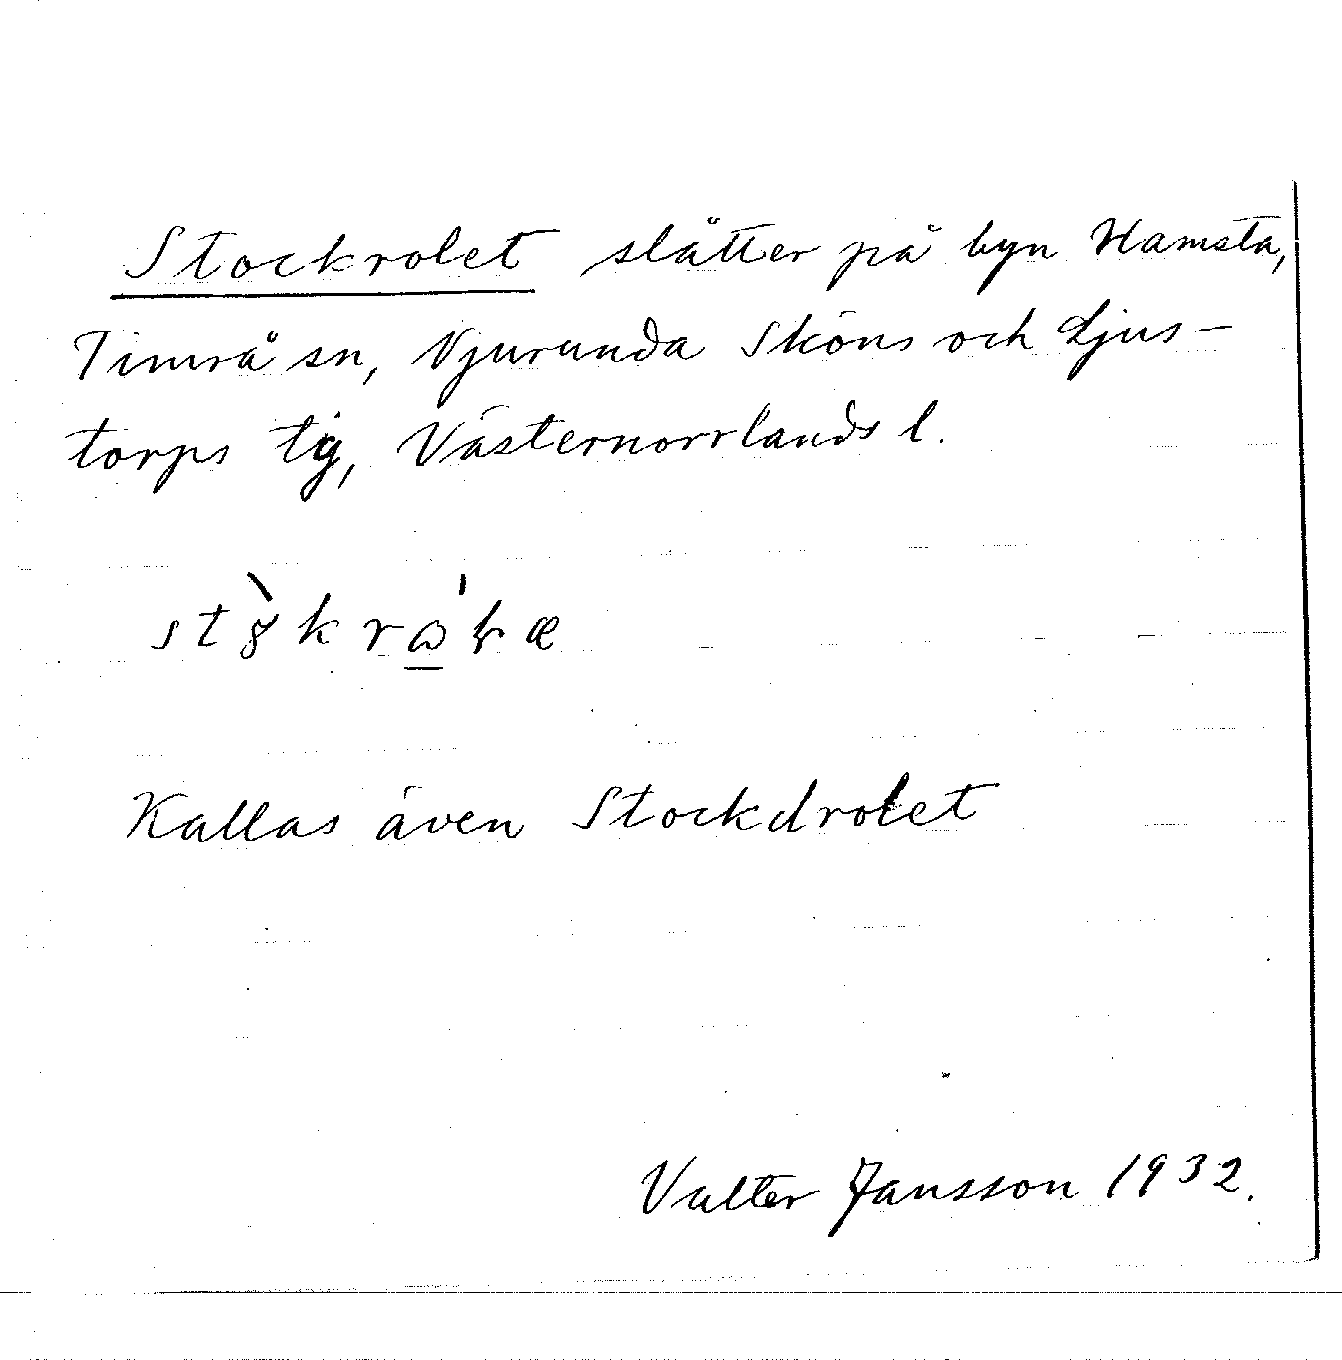 Stockrolet slåtter på byn Hamsta,
Timrå sn, Njurunda Sköns och Ljus-
torps tg, Västernorrlands l.
Kallas även Stockdrolet
Valter Jansson 1932.